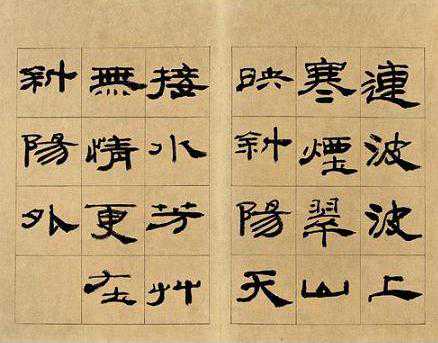 連波波上
寒煙翠山
映斜陽天
接水芳艸
無情更在
斜陽外